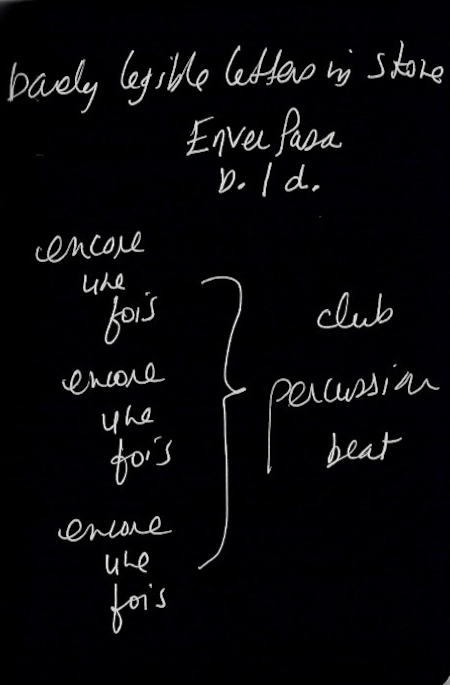 barely legible letters in stone
Enver Pasa
b. / d.
encore
une
fois
encore
une
fois
encore
une
fois
club
percussion
beat